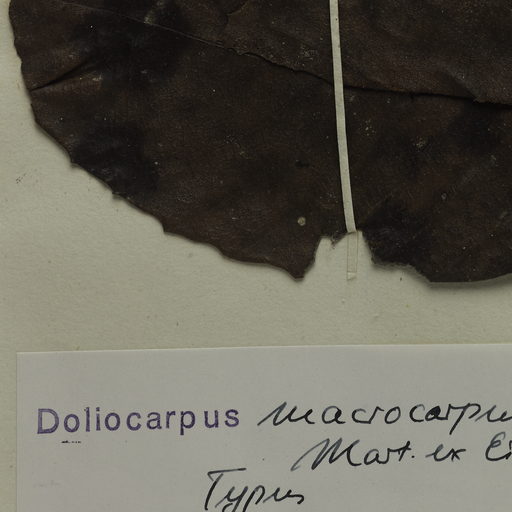 Doliocarpus macrocarpu
Mart. ex Ei
Typus